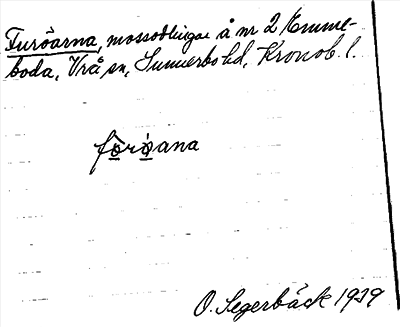 Furöarna, mossodlingar å nr 2 Emme-
boda, Vrå sn, Sunnerbo hd, Kronob. l.
fö̲rö̲ana
O. Segerbäck 1939